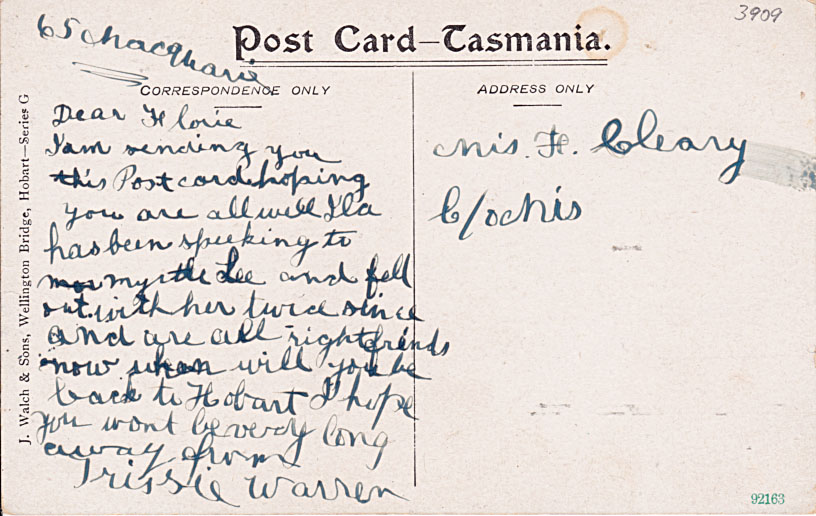 3909
65 Macquarie
Post Card–Tasmania.
CORRESPONDENCE ONLY
ADDRESS ONLY
Dear Florie
I am sending you
this Post card hoping
you are all well Ila
has been speeking to
myrtle Lee and fell
out with her twice since
and are all right frinds
now when will you be
back to Hobart I hope
you wont be verey long
away from
Trissie Warren
Mis. F. Cleary
C/o Mis
J. Walch & Sons, Wellington Bridge, Hobart—Series G
92163